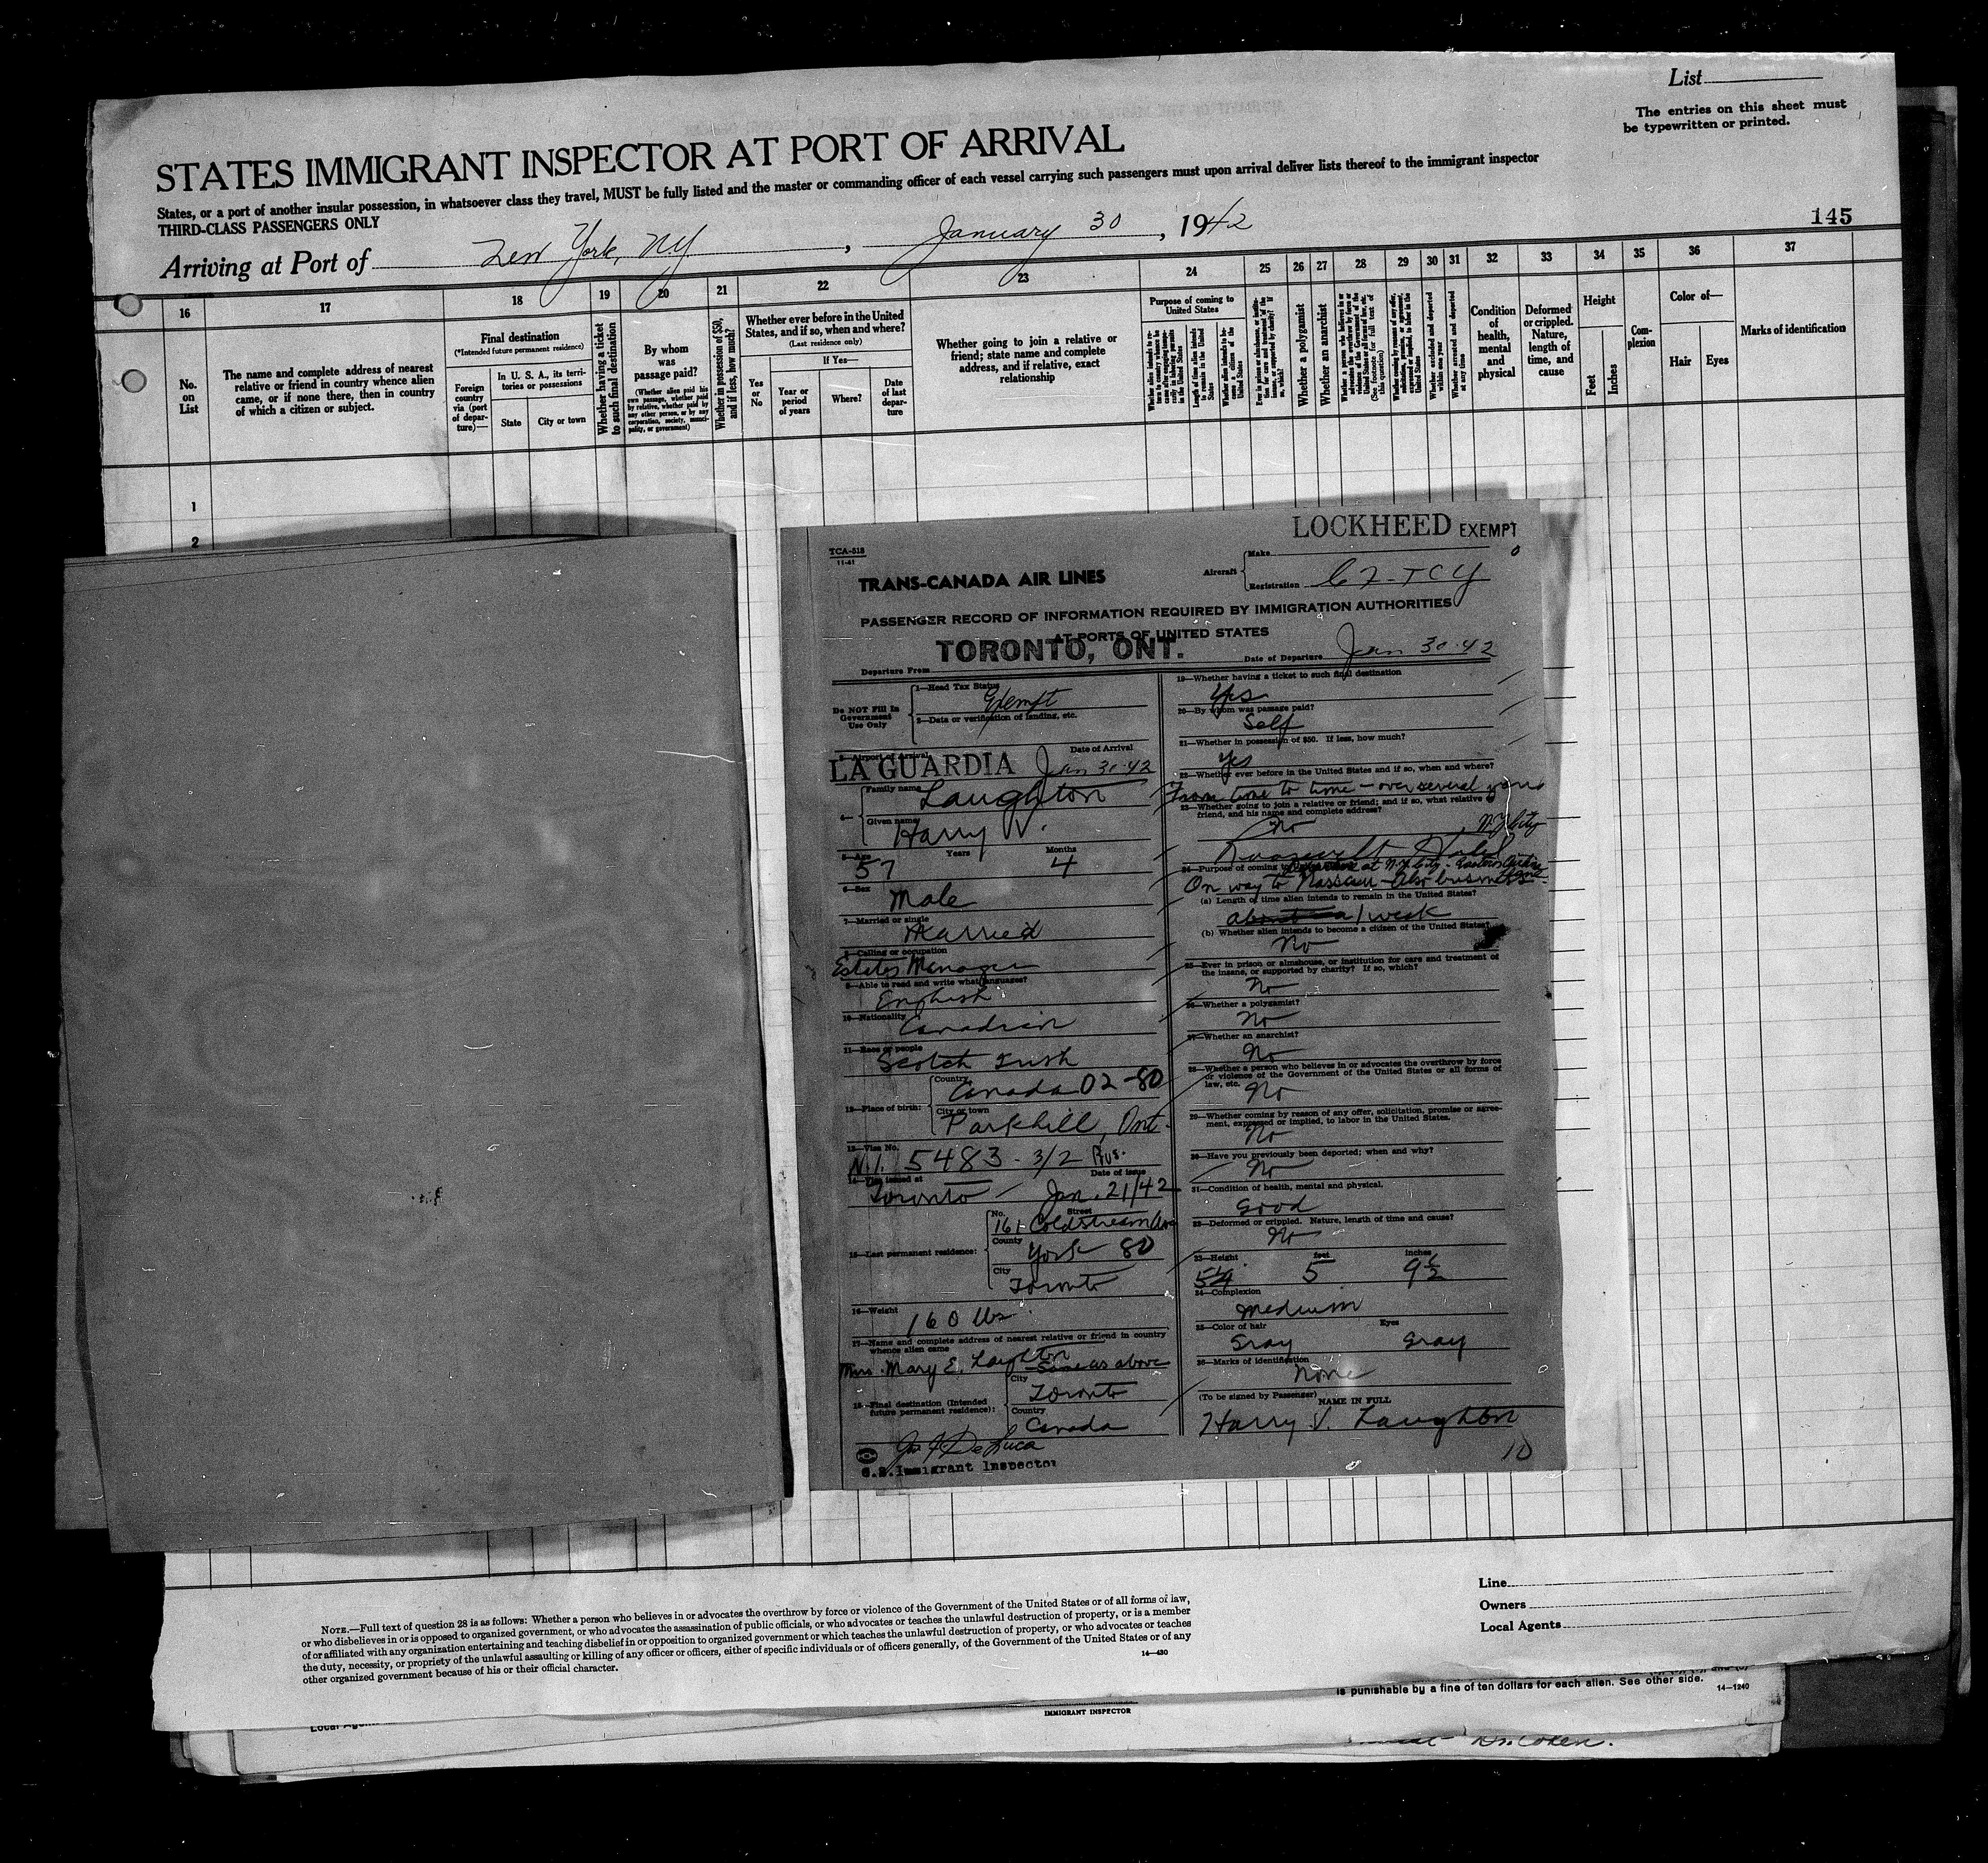 List
The entries on this sheet must
be typewritten or printed.
STATES IMMIGRANT INSPECTOR AT PORT OF ARRIVAL
States, or a port of another insular possession, in whatsoever class they travel, MUST be fully listed and the master or commanding officer of each vessel carrying such passengers must upon arrival deliver lists thereof to the immigrant inspector
THIRD-CLASS PASSENGERS ONLY
145
Arriving at Port of New York, N.Y. , January 30 , 1942
16 17 18 19 20 21 22 23 24 25 26 27 28 29 30 31 32 33 34 35 36 37
No. on List
The name and complete address of nearest
relative or friend in country whence alien
came, or if none there, then in country
of which a citizen or subject.
Final destination
(*Intended future permanent residence)
Foreign country via (port of departure)—
In U. S. A., its territories or possessions
State
City or town
Whether having a ticket to such final destination
By whom was passage paid?
(Whether alien paid his own passage, whether paid by relative, whether paid by any other person, or by any corporation, society, municipality, or government)
Whether in possession of $50, and if less, how much?
Whether ever before in the United
States, and if so, when and where?
(Last residence only)
Yes or No
If Yes—
Year or period of years
Where?
Date of last departure
Whether going to join a relative or
friend; state name and complete
address, and if relative, exact
relationship
Purpose of coming to United States
Length of time alien intends to remain in the United States
Whether alien intends to become a citizen of the United States
Whether a polygamist
Whether an anarchist
Whether excluded and deported within one year
Whether arrested and deported at any time
Condition of health, mental and physical
Deformed or crippled. Nature, length of time, and cause
Height
Feet
Inches
Complexion
Color of—
Hair
Eyes
Marks of identification
1
2
LOCKHEED EXEMPT
TCA-518
11-41
TRANS-CANADA AIR LINES
Aircraft
Make
Registration CF-TCY
PASSENGER RECORD OF INFORMATION REQUIRED BY IMMIGRATION AUTHORITIES
AT PORTS OF UNITED STATES
Departure From TORONTO, ONT.
Date of Departure Jan 30-42
Do NOT Fill In
Government
Use Only
1—Head Tax Status
Exempt
2—Data or verification of landing, etc.
3—Airport of Arrival
Date of Arrival
LA GUARDIA Jan 30-42
4—
Family name Laughton
Given name Harry V.
5—Age Years Months
57 4
6—Sex
Male
7—Married or single
Married
8—Calling or occupation
Estates Manager
9—Able to read and write what languages?
English
10—Nationality
Canadian
11—Race or people
Scotch Irish
12—Place of birth:
Country
Canada 02-80
City or town
Parkhill, Ont.
13—Visa No.
N.I. 5483 - 3/2 Bus.
14—Visa issued at Date of issue
Toronto - Jan. 21/42
15—Last permanent residence:
No. Street
161 Coldstream Ave
County
York 80
City
Toronto
16—Weight
160 lbs
17—Name and complete address of nearest relative or friend in country
whence alien came
Mrs. Mary E. Laughton
Same as above
18—Final destination (Intended
future permanent residence):
City
Toronto
Country
Canada
De Luca
U.S. Immigrant Inspector
19—Whether having a ticket to such final destination
Yes
20—By whom was passage paid?
Self
21—Whether in possession of $50. If less, how much?
Yes
22—Whether ever before in the United States and if so, when and where?
From time to time - over several years
23—Whether going to join a relative or friend; and if so, what relative or
friend, and his name and complete address?
No
Roosevelt Hotel, N.Y. City
24—Purpose of coming to United States
at N.Y. City - Eastern
On way to Nassau - Also business
(a) Length of time alien intends to remain in the United States?
about a 1 week
(b) Whether alien intends to become a citizen of the United States?
No
25—Ever in prison or almshouse, or institution for care and treatment of
the insane, or supported by charity? If so, which?
No
26—Whether a polygamist?
No
27—Whether an anarchist?
No
28—Whether a person who believes in or advocates the overthrow by force
or violence of the Government of the United States or all forms of
law, etc.
No
29—Whether coming by reason of any offer, solicitation, promise or agree-
ment, expressed or implied, to labor in the United States.
No
30—Have you previously been deported; when and why?
No
31—Condition of health, mental and physical.
Good
32—Deformed or crippled. Nature, length of time and cause?
No
33—Height feet inches
5 9½
34—Complexion
Medium
35—Color of hair Eyes
Gray Gray
36—Marks of identification
None
(To be signed by Passenger) NAME IN FULL
Harry V. Laughton
10
Line
Owners
Local Agents
NOTE.—Full text of question 28 is as follows: Whether a person who believes in or advocates the overthrow by force or violence of the Government of the United States or of all forms of law,
or who disbelieves in or is opposed to organized government, or who advocates the assassination of public officials, or who advocates or teaches the unlawful destruction of property, or is a member
of or affiliated with any organization entertaining and teaching disbelief in or opposition to organized government or which teaches the unlawful destruction of property, or who advocates or teaches
the duty, necessity, or propriety of the unlawful assaulting or killing of any officer or officers, either of specific individuals or of officers generally, of the Government of the United States or of any
other organized government because of his or their official character.
14—430
is punishable by a fine of ten dollars for each alien. See other side. 14—1240
IMMIGRANT INSPECTOR